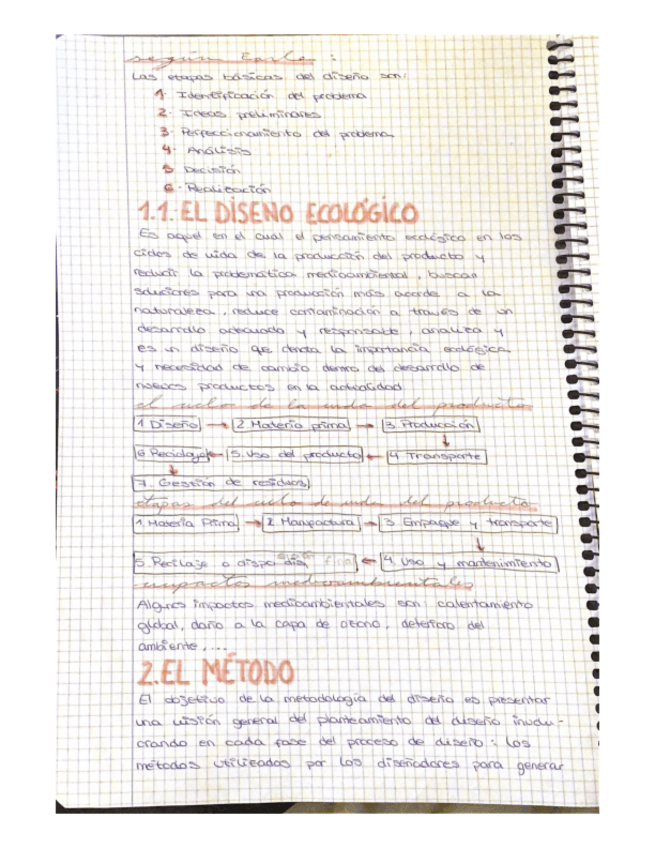 según Earle :
Las etapas básicas del diseño son:
1. Identificación del problema
2. Ideas preliminares
3. Perfeccionamiento del problema
4. Análisis
5 Decisión
6. Realización
1.1. EL DISEÑO ECOLÓGICO
Es aquel en el cual el pensamiento ecológico en los
ciclos de vida de la producción del producto y
reducir la problemática medioambiental, buscan
soluciones para una producción más acorde a la
naturaleza, reduce contaminación a través de un
desarrollo adecuado y responsable, analiza y
es un diseño qe denota la importancia ecológica
y necesidad de cambio dentro del desarrollo de
nuevos productos en la actualidad
el ciclo de la vida del producto
1 Diseño → 2. Materia prima → 3. Producción
6 Reciclaje ← 5. Uso del producto ← 4 Transporte
7. Gestión de residuos
etapas del ciclo de vida del producto
1. Materia Prima → 2. Manufactura → 3. Empaque y transporte
5. Recilaje o ← 4. Uso y mantenimiento
impactos medioambientales
Algunos impactos medioambientales son: calentamiento
global, daño a la capa de ozono, deterioro del
ambiente, ...
2. EL MÉTODO
El objetivo de la metodología del diseño es presentar
una visión general del planteamiento del diseño involu-
crando en cada fase del proceso de diseño: los
métodos utilizados por los diseñadores para generar